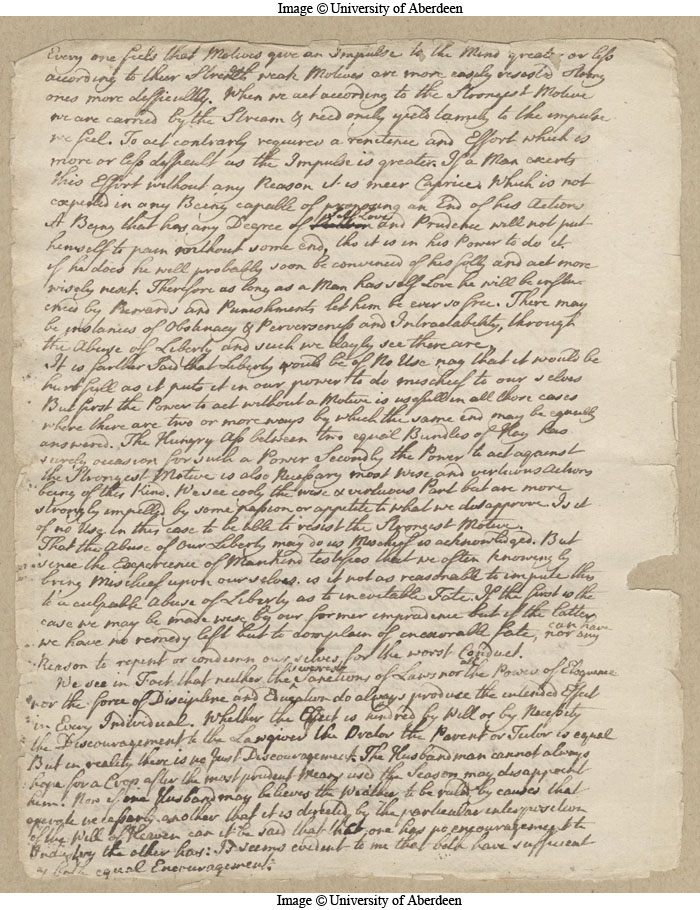 Image © University of Aberdeen
Every one feels that Motives give an Impulse to the Mind greater or less
according to their Strenth weak Motives are more easyly resisted Strong
ones more difficultly. When we act according to the Strongest Motive
we are carried by the Stream & need onely yield tamely to the impulse
we feel. To act contrarly requires a renitence and Effort which is
more or less difficult as the Impulse is greater. If a Man exerts
this Effort without any Reason it is meer Caprice. Which is not
expected in any Being capable of proposing an End of his Actions
A Being that has any Degree of Self Love and Prudence will not put
himself to pain without some end, tho it is in his Power to do it
if he does he will probably soon be convinced of his folly and act more
wisely next. Therefore as long as a Man has self Love he will be influ-
enced by Rewards and Punishments let him be ever so free. There may
be instances of Obstinacy & Perverseness and Intractability, through
the Abuse of Liberty and such we dayly see there are,
It is farther Said that Liberty would be of No Use nay that it would be
hurtfull as it puts it in our power to do mischief to our selves
But first the Power to act without a Motive is usefull in all those cases
where there are two or more ways by which the same end may be equally
answered. The Hungry Ass between two equal Bundles of Hay has
surely occasion for such a Power Secondly the Power to act against
the Strongest Motive is also Necessary most Wise and virtuous Actions
being of this Kind. We see cooly the wise & virtuous Part but are more
strongly impelled by some passion or appetite to what we disapprove. Is it
of no Use in this case to be able to resist the Strongest Motive.
That the Abuse of Our Liberty may do us Mischief is acknowledged. But
since the Exeperience of Mankind testifies that we often Knowingly
bring Mischief upon ourselves. is it not as reasonable to impute this
to a culpable Abuse of Liberty as to inevitable Fate. If the first is the
case we may be made wise by our former imprudence but if the latter
we have no remedy left but to complain of inexorable fate, nor any can have
Reason to repent or condemn our selves for the worst Conduct.
We see in Fact that neither the severest Sanctions of Laws nor the Powers of Eloquence
nor the force of Discipline and Education do always produce the intended Effect
in Every Individual. Whether the Effect is hindred by Will or by Necessity
the Discouragement to the Lawgiver the Orator the Parent or Tutor is equal
But in reality there is no Just Discouragement. The Husbandman cannot always
hope for a Crop after the most prudent Means used the Season may disappoint
him. Now if one Husbandman believes the Weather to be ruled by causes that
operate necessarly another that it is directed by the particular interposition
of the Will of Heaven can it be said that that one has no encouragement to
Industry the other has: It seems evident to me that both have sufficient
equal Encouragement.
Image © University of Aberdeen